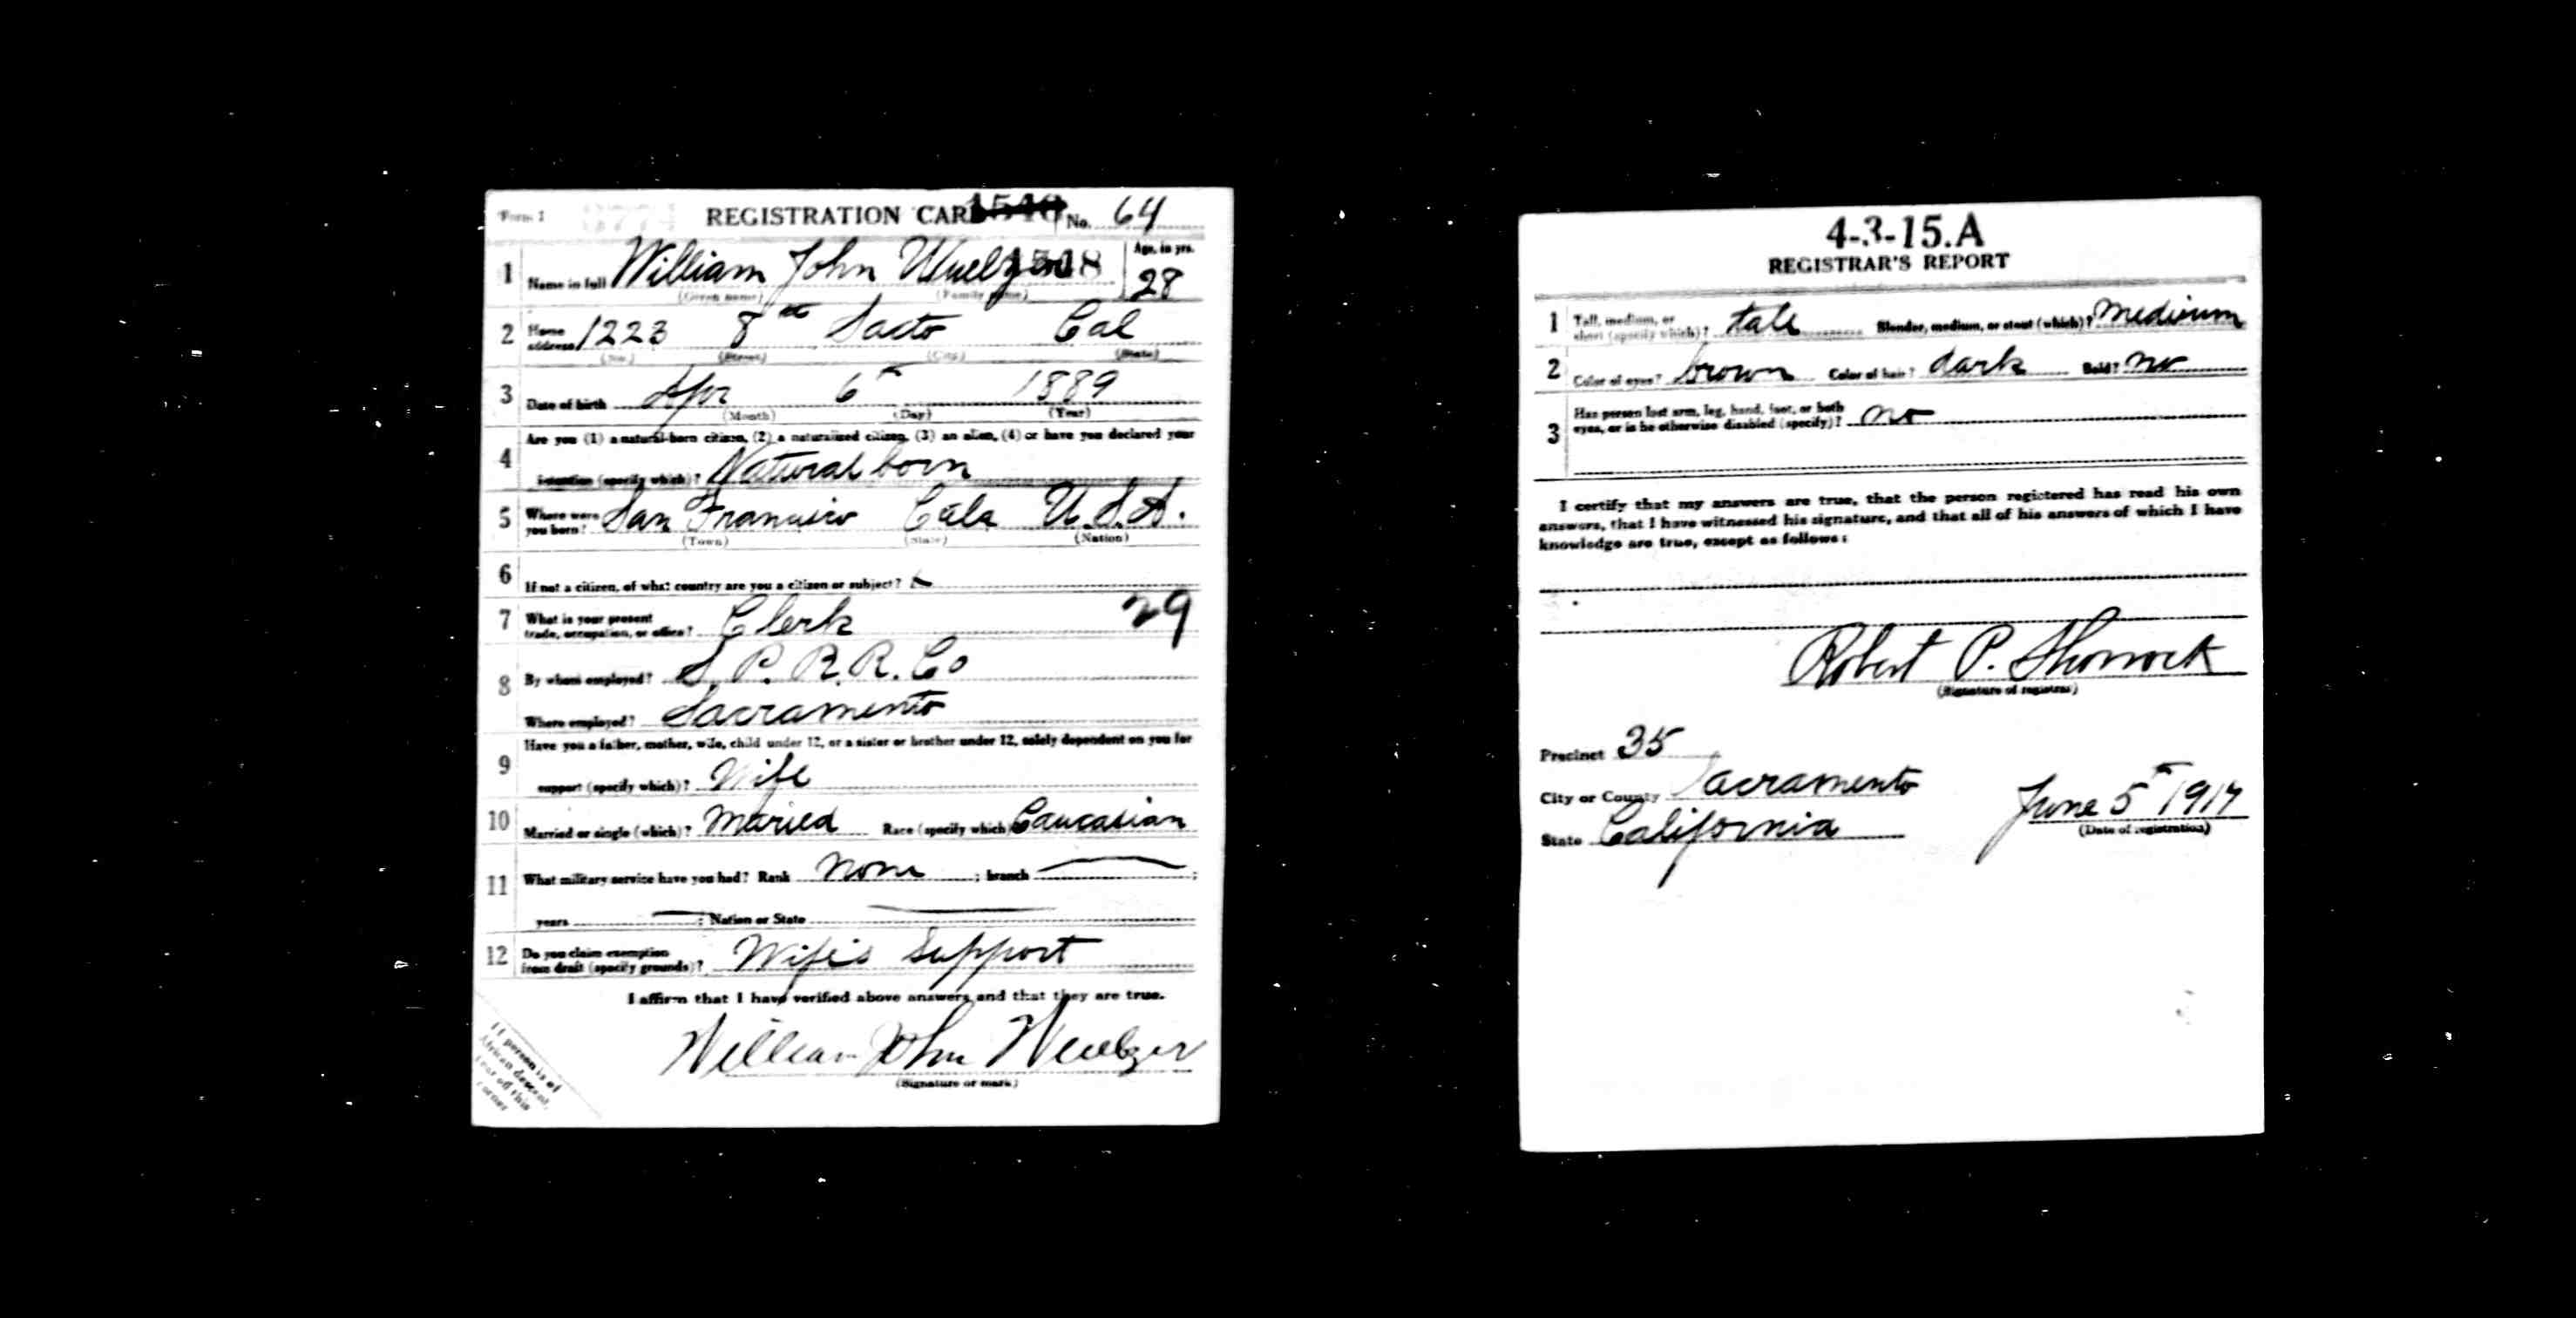 Form 1 REGISTRATION CARD No. 64
1 Name in full William John Wuelzer 1518 Age, in yrs. 28
(Given name) (Family name)
2 Home address 1223 8th Sacto Cal
(No.) (Street) (City) (State)
3 Date of birth Apr 6th 1889
(Month) (Day) (Year)
4 Are you (1) a natural-born citizen, (2) a naturalized citizen, (3) an alien, (4) or have you declared your
intention (specify which)? Natural born
5 Where were you born? San Francisco Cala U.S.A.
(Town) (State) (Nation)
6 If not a citizen, of what country are you a citizen or subject?
7 What is your present trade, occupation, or office? Clerk 29
8 By whom employed? S. P. R. R. Co
Where employed? Sacramento
9 Have you a father, mother, wife, child under 12, or a sister or brother under 12, solely dependent on you for
support (specify which)? Wife
10 Married or single (which)? Maried Race (specify which)? Caucasian
11 What military service have you had? Rank none ; branch ;
years ; Nation or State
12 Do you claim exemption from draft (specify grounds)? Wife's Support
I affirm that I have verified above answers and that they are true.
William John Wuelzer
(Signature or mark)
If person is of
African descent,
tear off this
corner
4-3-15.A
REGISTRAR'S REPORT
1 Tall, medium, or short (specify which)? tall Slender, medium, or stout (which)? Medium
2 Color of eyes? brown Color of hair? dark Bald? no
3 Has person lost arm, leg, hand, foot, or both
eyes, or is he otherwise disabled (specify)? no
I certify that my answers are true, that the person registered has read his own
answers, that I have witnessed his signature, and that all of his answers of which I have
knowledge are true, except as follows:
Robert P. Shorrock
(Signature of registrar)
Precinct 35
City or County Sacramento June 5th 1917
State California (Date of registration)